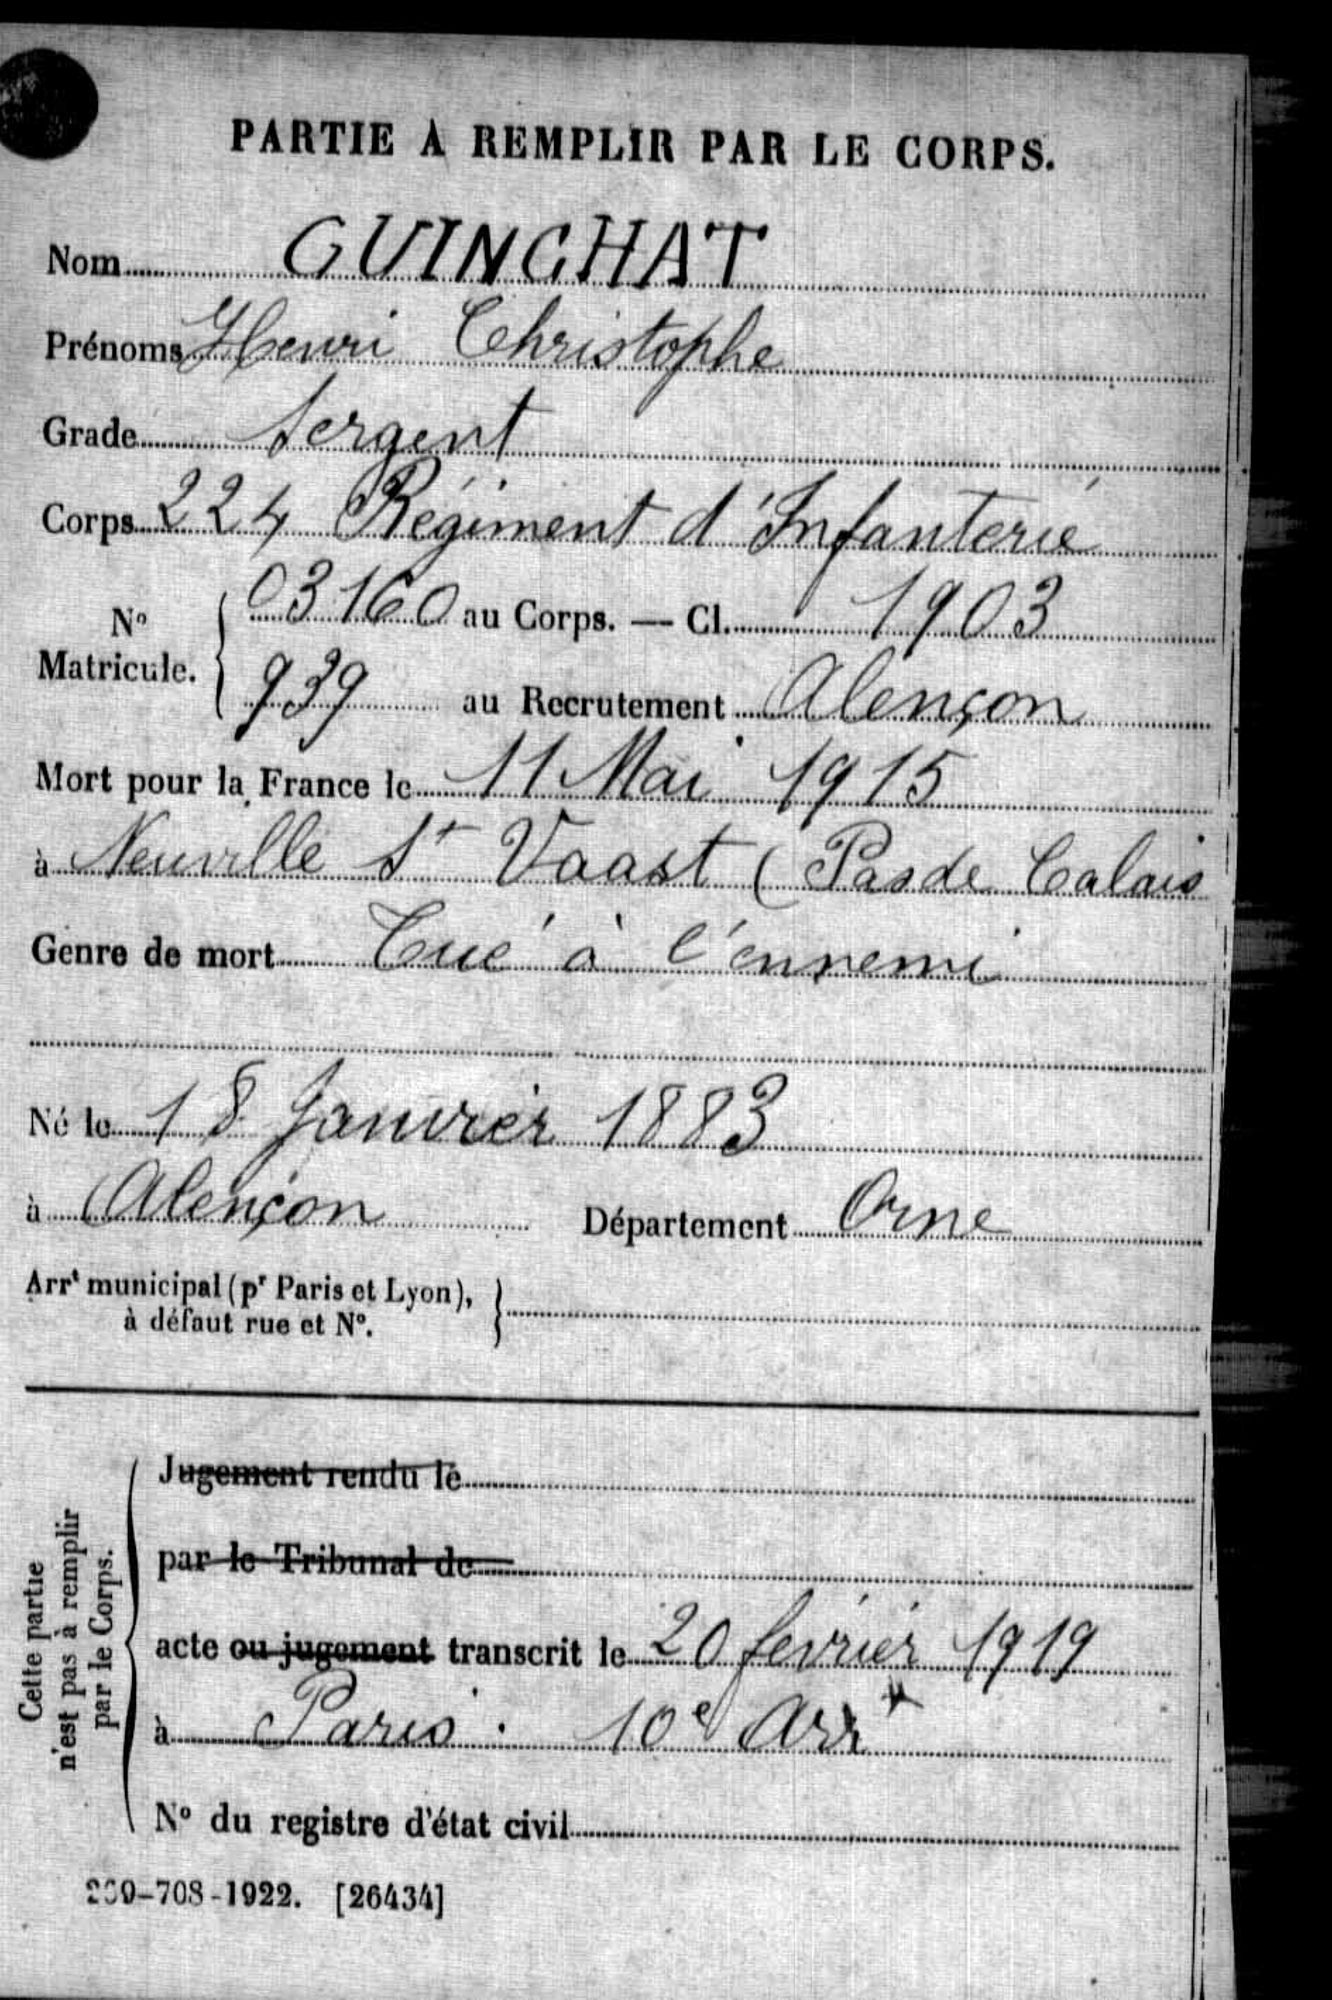 PARTIE A REMPLIR PAR LE CORPS.
Nom GUINCHAT
Prénoms Henri Christophe
Grade Sergent
Corps 224 Régiment d'Infanterie
No Matricule. { 03160 au Corps. — Cl. 1903
939 au Recrutement Alençon
Mort pour la France le 11 Mai 1915
à Neuville St Vaast (Pas de Calais
Genre de mort Tué à l'ennemi
Né le 18 Janvier 1883
à Alençon Département Orne
Arrt municipal (pr Paris et Lyon),
à défaut rue et No. }
Cette partie
n'est pas à remplir
par le Corps.
Jugement rendu le
par le Tribunal de
acte ou jugement transcrit le 20 février 1919
à Paris. 10e Arrt
No du registre d'état civil
-708-1922. [26434]